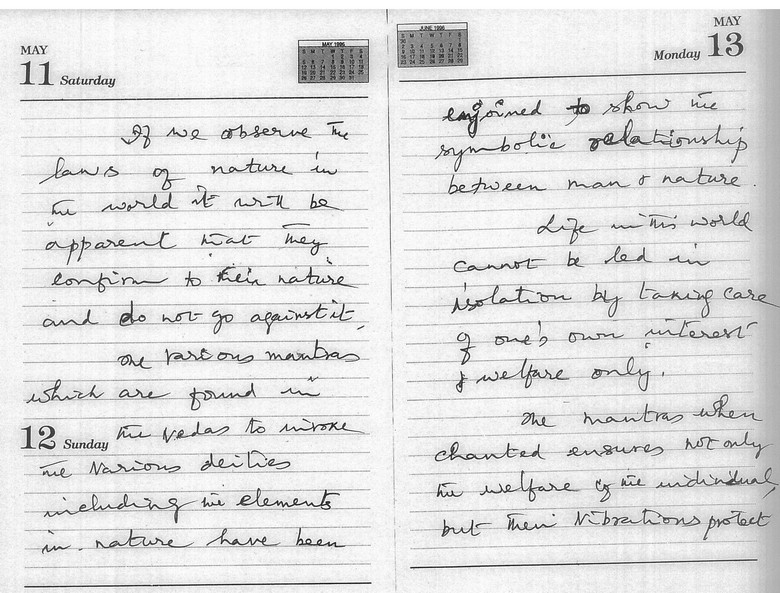 MAY
11 Saturday
MAY 1996
If we observe the
laws of nature in
the world it will be
apparent that they
confirm to their nature
and do not go against it.
The various mantras
which are found in
12 Sunday the Vedas to invoke
the various deities
including the elements
in nature have been
JUNE 1996
MAY
Monday 13
enjoined to show the
symbolic relationship
between man & nature.
Life in this world
cannot be led in
isolation by taking care
of one's own interest
& welfare only.
The mantras when
chanted ensures not only
the welfare of the individual,
but their vibrations protect